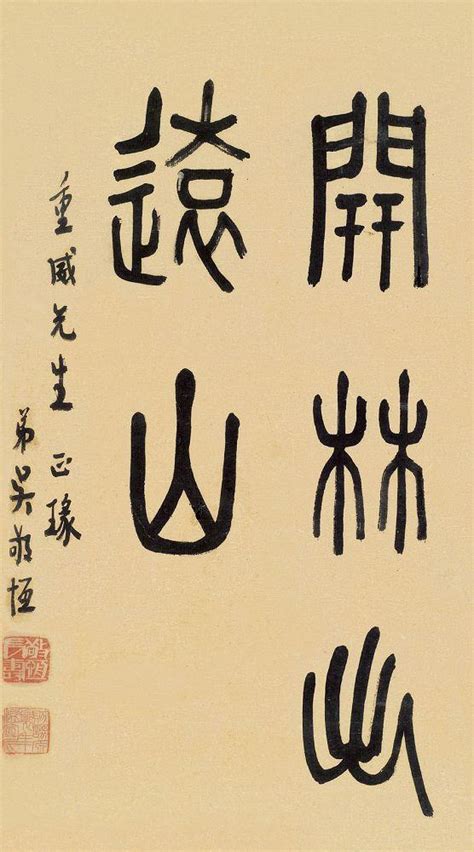 開林出
遠山
重威先生 正瑑
弟吳敬恒